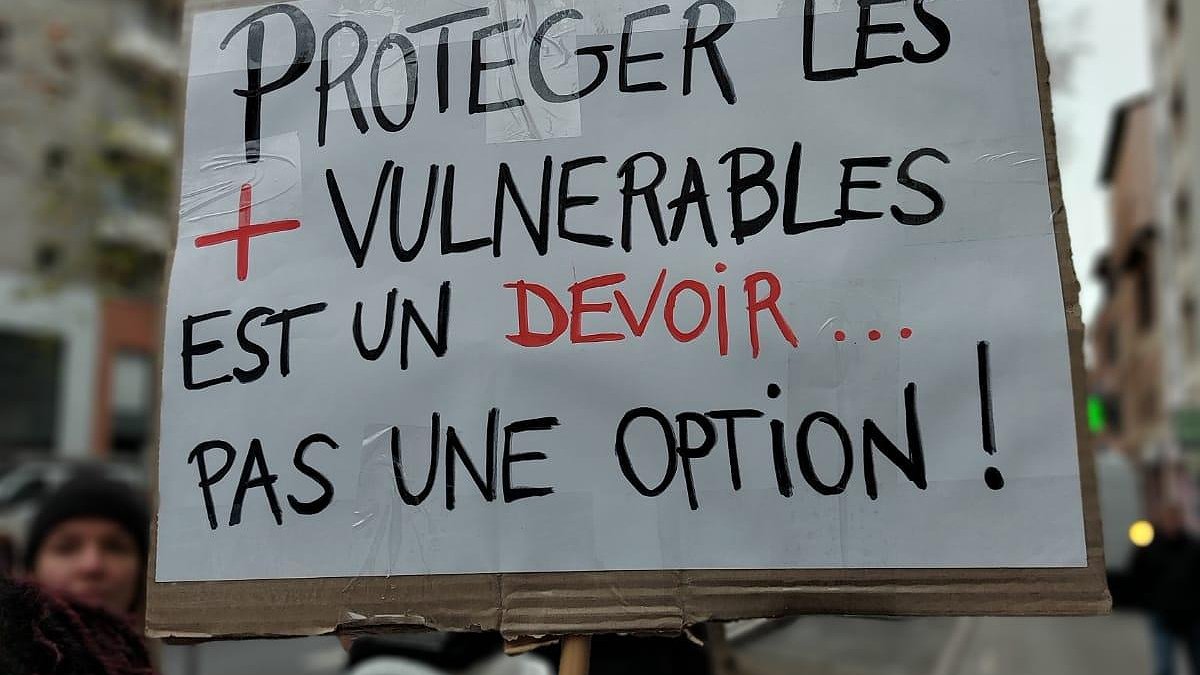 PROTEGER LES
+ VULNERABLES
EST UN DEVOIR...
PAS UNE OPTION !